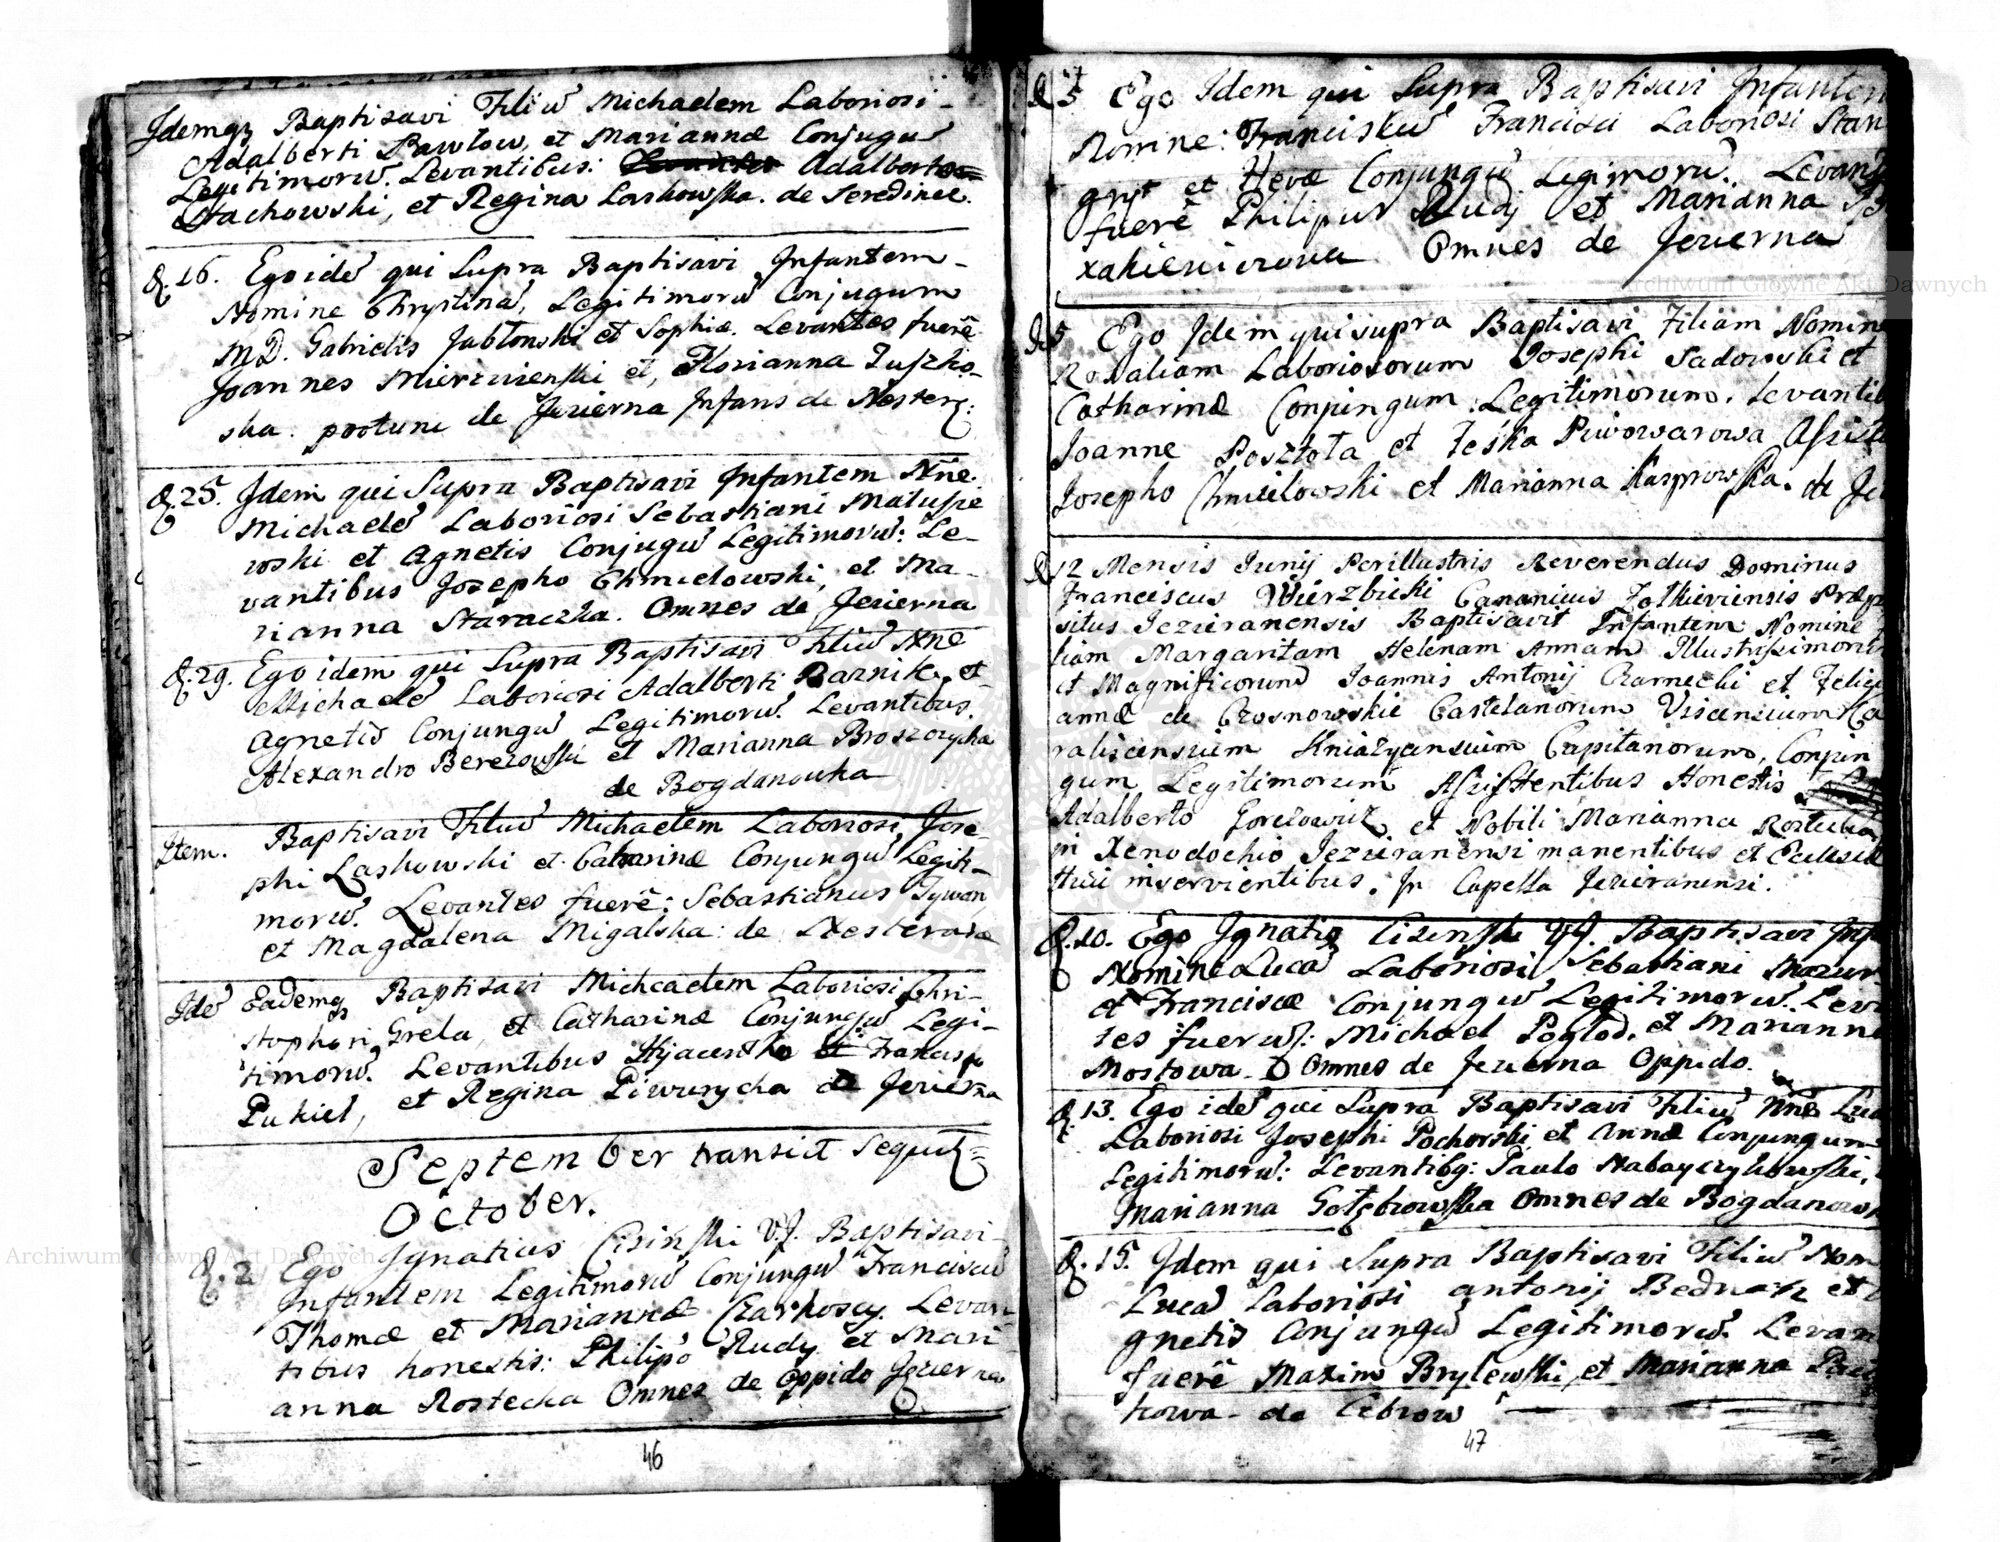 Idemqz Baptisavi Filiũ Michaelem Laboriosi
Adalberti Pawlow, et Mariannæ Conjugũ
Legitimorũ. Levantibus: Adalberto
Stachowski, et Regina Laskowska. de Seredince.
D. 16. Ego idẽ qui Supra Baptisavi Infantem
Nomine Chrystinã, Legitimorũ Conjugum
M D. Gabrielis Jabłonski et Sophiæ. Levantes fuerẽ
Joannes Mierzwienski et, Florianna
ska. de Jezierna Infans de Nester:
D. 25. Idem qui Supra Baptisavi Infantem Nñe
Michaelẽ Laboriosi Sebastiani Matusze
wski et Agnetis Conjugũ Legitimorũ: Le-
vantibus Josepho Chmielowski, et Ma-
rianna Staraczka. Omnes de Jezierna
D. 29. Ego idem qui Supra Baptisavi Filiũ Nñe
Michaelẽ Laboriosi Adalberti Baznik, et
Agnetis Conjungũ Legitimorũ. Levantibus.
Alexandro Berezowski et Marianna Broszczycha
de Bogdanowka
Item. Baptisavi Filiũ Michaelem Laboriosi, Jose-
phi Laskowski et Catharinæ Conjungũ Legiti-
morũ. Levantes fuerẽ: Sebastianus Tywan,
et Magdalena Migalska: de
Idẽ Eademqz Baptisavi Michaelem Laboriosi Chri-
stophori Grela, et Catharinæ Conjungũ Legi-
timorũ. Levantibus Hyacintho et Francisco
Pukiel, et Regina Piwurycha de Jezierna
September transit sequit
October.
D. 2 Ego Ignatius Cisinski V.J. Baptisavi
Infantem Legitimorũ Conjungũ Franciscũ
Thomæ et Mariannæ Czarkoscy. Levan
tibus honestis: Philipo Rudy et Mari
anna Rostecka Omnes de Oppido Jezierna
46
D 5 Ego Idem qui Supra Baptisavi Infantem
Nomine: Franciskũ Francisci Laboriosi Stan
gryt et Hevæ Conjungũ Legimorũ. Levan
fuerẽ Philipus Rudy et Marianna
Omnes de Jezierna
D 5 Ego Idem qui supra Baptisavi Filiam Nomin
Rosaliam Laboriosorum Josephi Sadowski et
Catharinæ Conjungum Legitimorum. Levantib
Joanne Posztota et Teska Piwowarowa
Josepho Chmielowski et Marianna Kasprowska. de Je
D 12 Mensis Junij Perillustris Reverendus Dominus
Franciscus Wierzbicki Canonicus Zołkieviensis Præp
situs Jezieranensis Baptisavit Infantem Nomine
liam Margaritam Helenam Annam Illustrissimorum
et Magnificorum Joannis Antonij Czarnecki et Felici
annæ de Crosnowskie Castelanorum
Capitanorum, Conjun
gum Legitimorum Assistentibus Honestis
Adalberto Gorelowicz et Nobili Marianna
in Xenodochio Jezieranensi manentibus et
inservientibus. In Capella Jezieranensi.
D. 10. Ego Ignatio Cisinski V.J. Baptisavi Inf
Nomine Lucã Laboriosi Sebastiani Mazur
et Franciscæ Conjungũ Legitimorũ. Leva
tes fuerũt: Michael Poglod, et Marianna
Mostowa Omnes de Jezierna Oppido.
D. 13. Ego idẽ qui Supra Baptisavi Filiũ Nñe Luc
Laboriosi Josephi Pochorski et Annæ Conjungum
Legitimorũ: Levantibq: Paulo
Marianna Gołębiowska Omnes de Bogdanow
D. 15. Idem qui Supra Baptisavi Filiũ Nom
Lucã Laboriosi Antonij Bednarz et
gnetis Conjungũ Legitimorũ. Levan
fuerẽ Maxim Brylewski, et Marianna
kowa de Cebrow
47
Archiwum Główne Akt Dawnych
Archiwum Główne Akt Dawnych